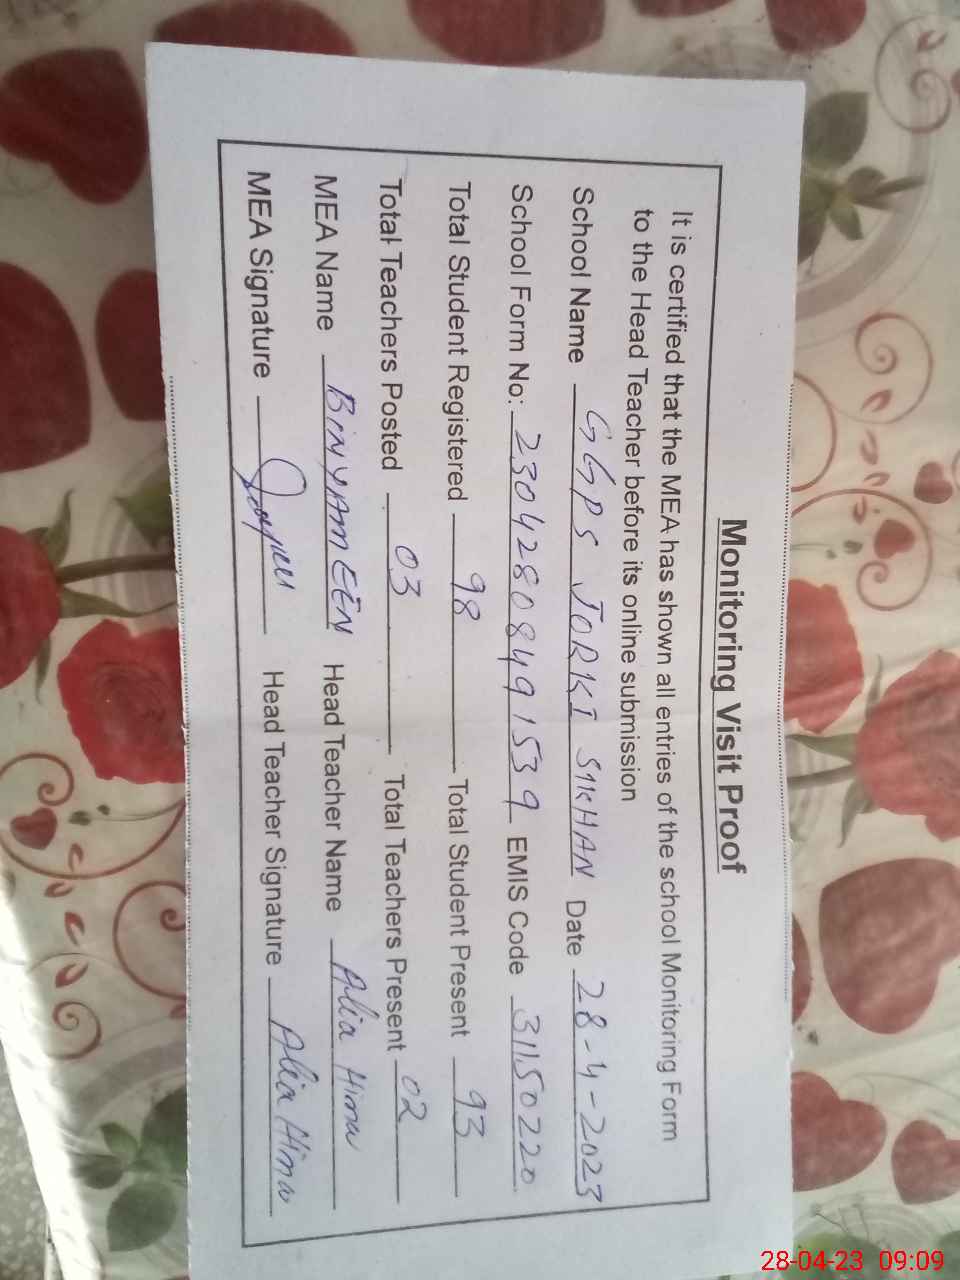 Monitoring Visit Proof
It is certified that the MEA has shown all entries of the school Monitoring Form
to the Head Teacher before its online submission
School Name GGPS JORKI SIKHAN Date 28-4-2023
School Form No: 23042808491539 EMIS Code 31150220
Total Student Registered 98 Total Student Present 93
Total Teachers Posted 03 Total Teachers Present 02
MEA Name BINYAMEEN Head Teacher Name Alia Hina
MEA Signature Head Teacher Signature Alia Hina
28-04-23 09:09